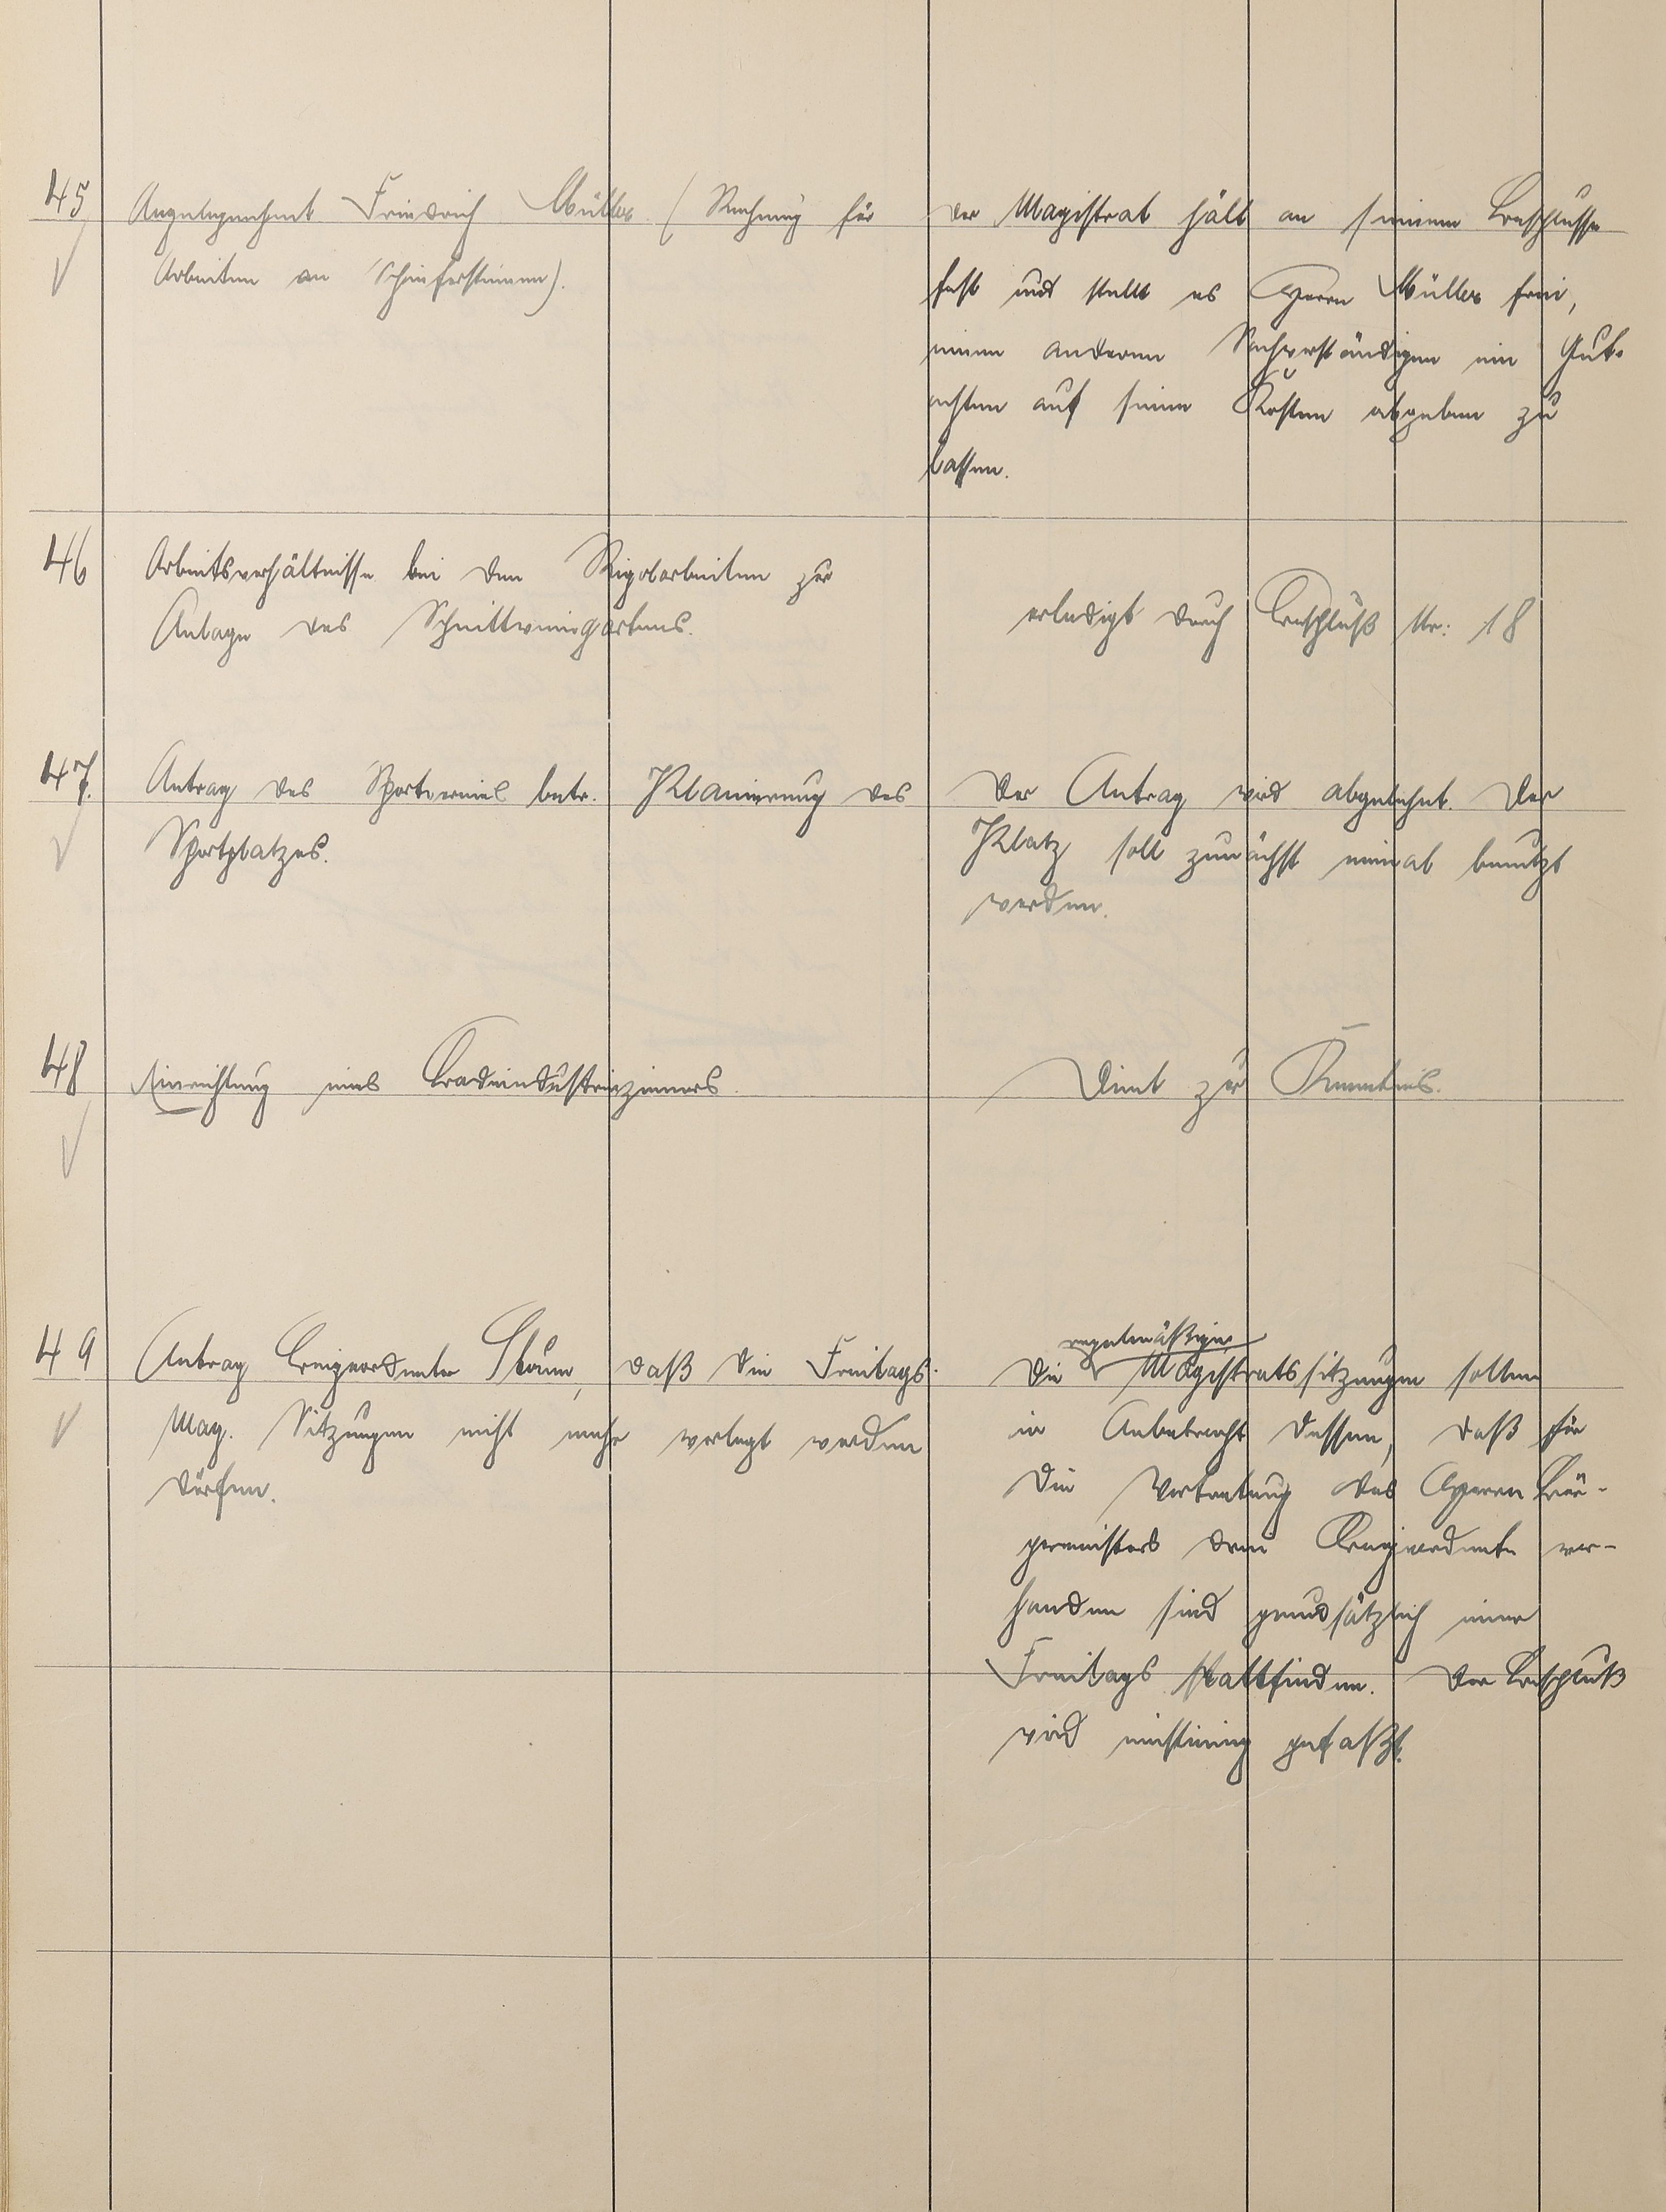 45
Angelegenheit Friedrich Müller (Rechnung für
Arbeiten an Schiefersteinen).
der Magistrat hält an seinem Beschlusse
fest und stellt es Herrn Müller frei,
einen anderen Sachverständigen ein Gut-
achten auf seine Kosten abgeben zu
lassen.
46
Arbeitsverhältnisse bei den Rigolarbeiten zur
Anlage des Schnittweingartens.
erledigt durch Beschluß Nr: 18
47.
Antrag des Sportvereins betr. Planierung des
Sportplatzes.
Der Antrag wird abgelehnt. Der
Platz soll zunächst einmal benutzt
werden.
48
Einrichtung eines
Dient zur Kenntnis.
49
Antrag Beigeordneter daß die Freitags-
Mag. Sitzungen nicht mehr verlegt werden
dürfen.
regelmäßigen
Die Magistratssitzungen sollen
in Anbetracht dessen, daß für
die Vertretung des Herrn Bür-
germeisters drei Beigeordnete vor-
handen sind grundsätzlich immer
Freitags stattfinden. Der Beschluß
wird einstimmig gefaßt.